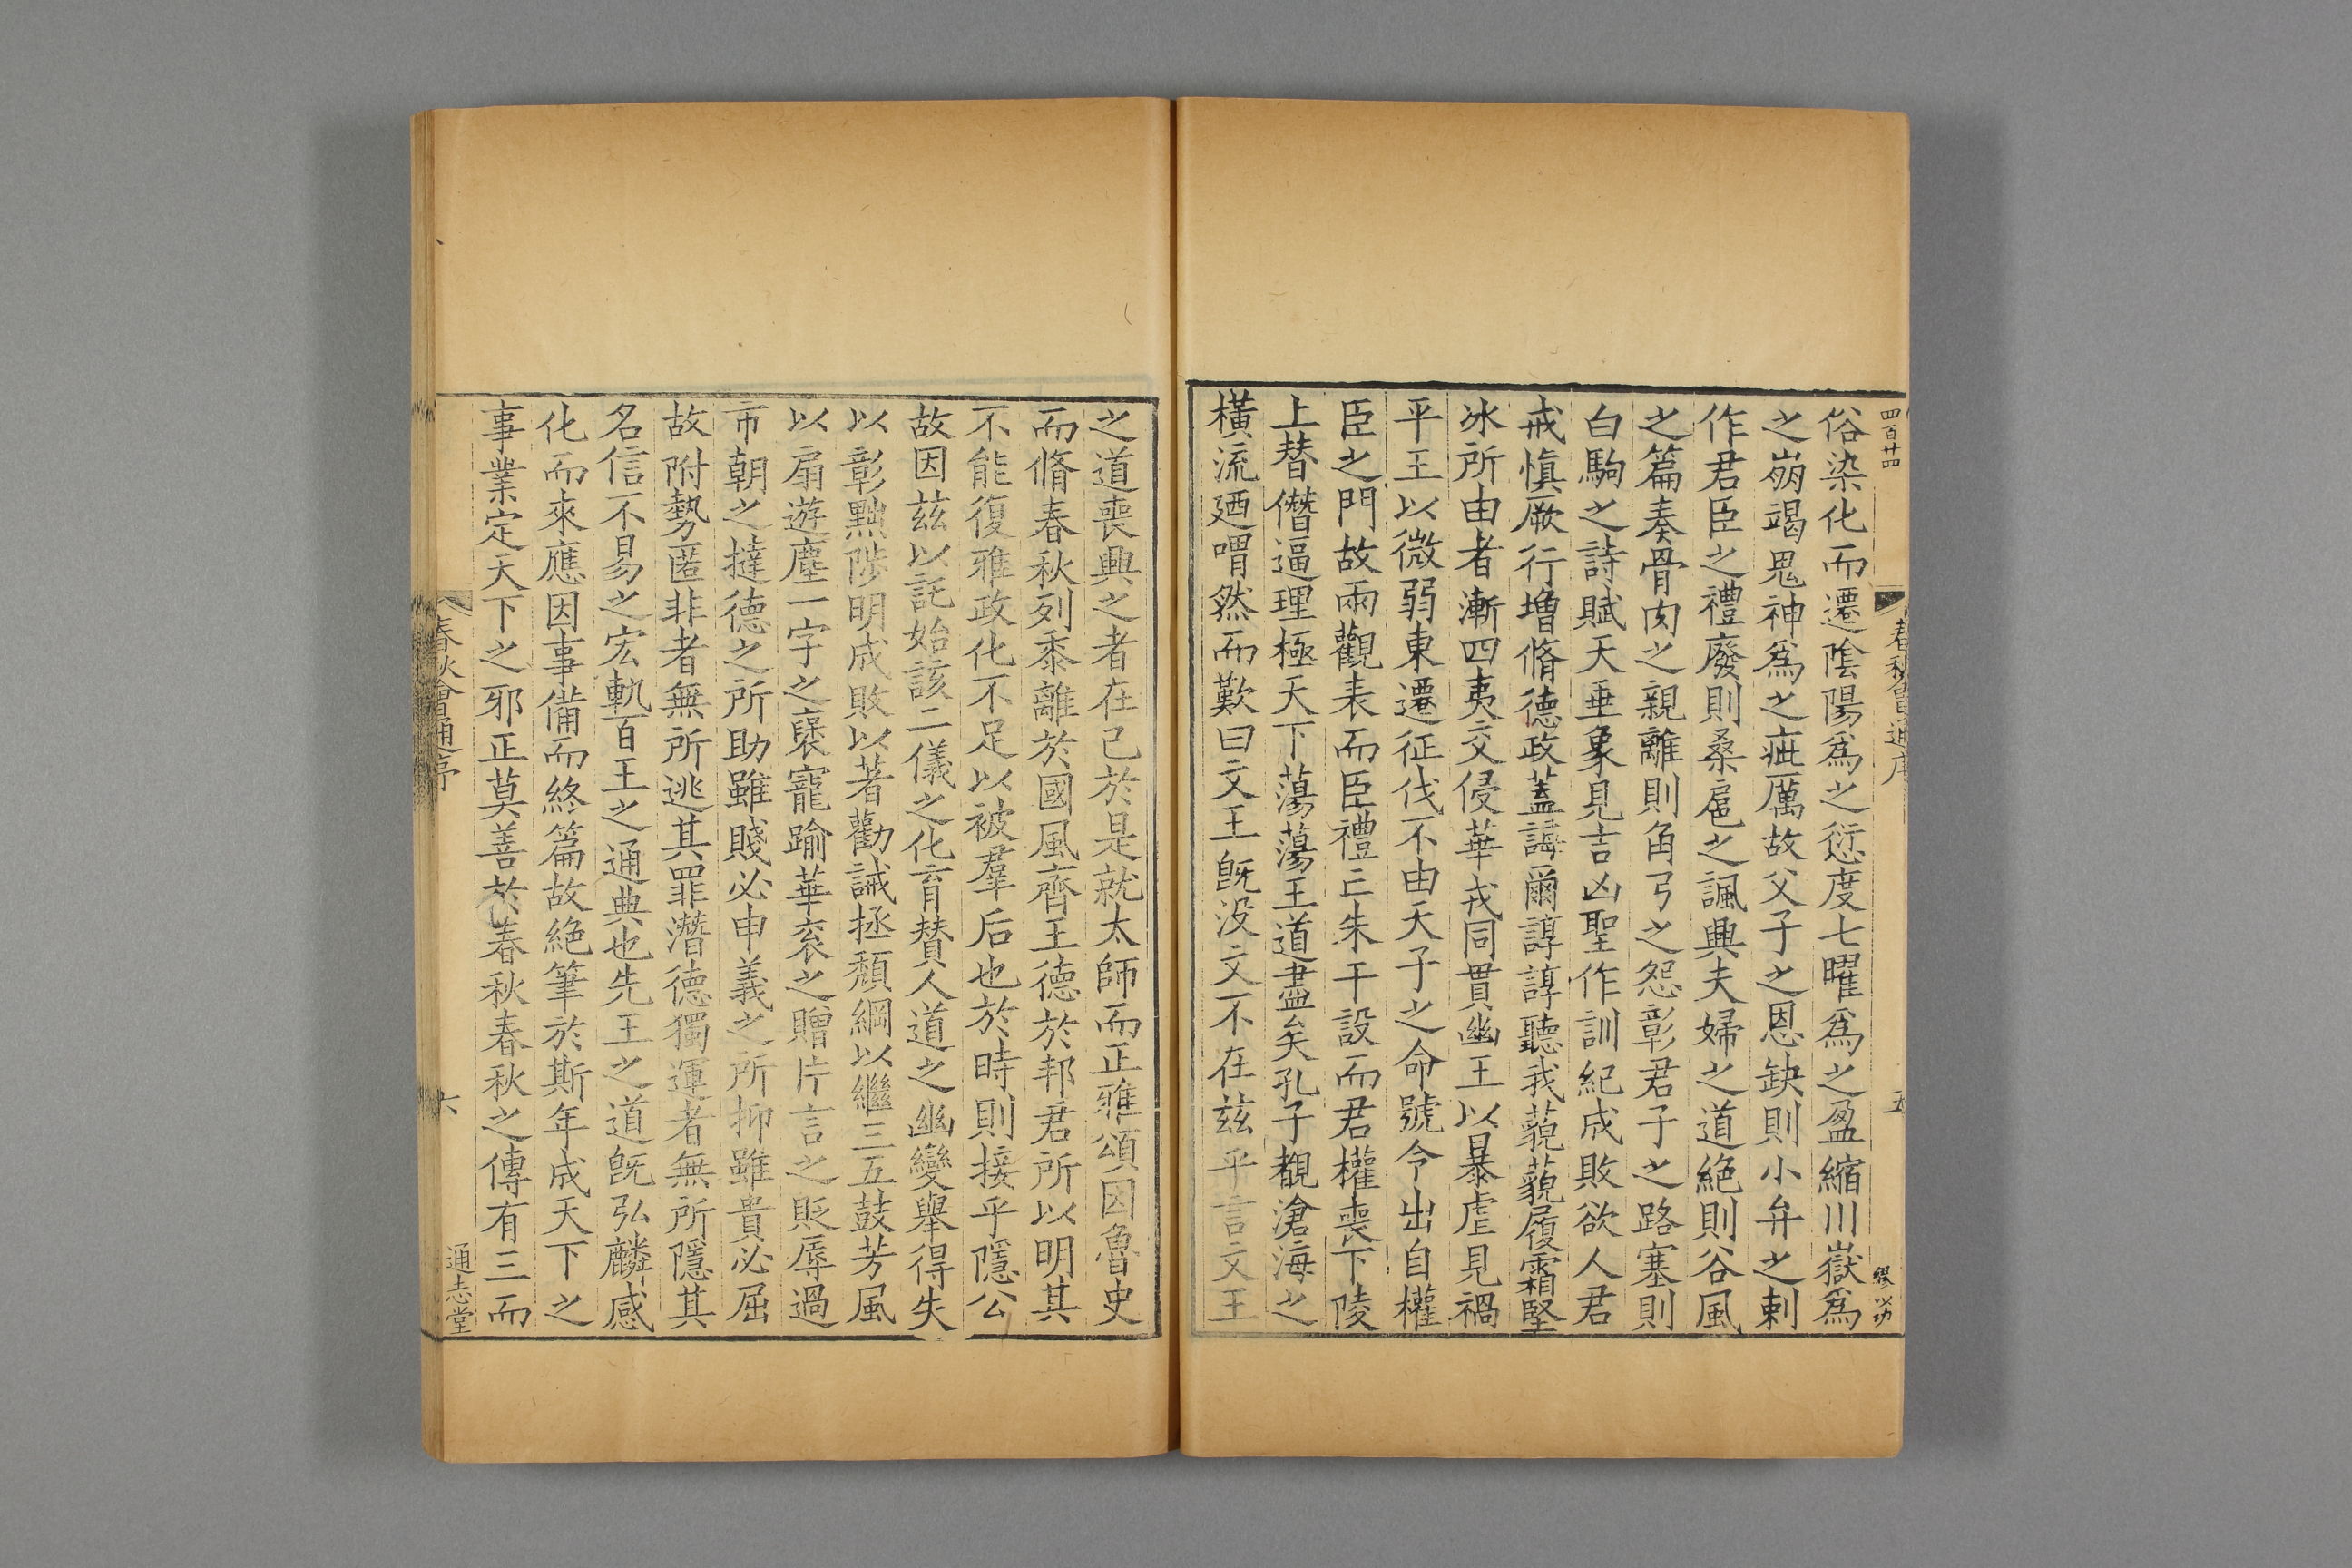 四百廿四
春秋會通序
五
俗染化而遷陰陽爲之愆度七曜爲之盈縮川嶽爲
之崩竭鬼神爲之疵厲故父子之恩缺則小弁之刺
作君臣之禮廢則桑扈之諷興夫婦之道絶則谷風
之篇奏骨肉之親離則角弓之怨彰君子之路塞則
白駒之詩賦天垂象見吉凶聖作訓紀成敗欲人君
戒愼厥行增脩德政蓋誨爾諄諄聽我藐藐履霜堅
冰所由者漸四夷交侵華戎同貫幽王以暴虐見禍
平王以微弱東遷征伐不由天子之命號令出自權
臣之門故兩觀表而臣禮亡朱干設而君權喪下陵
上替僭逼理極天下蕩蕩王道盡矣孔子覩滄海之
橫流廼喟然而歎曰文王旣没文不在茲乎言文王
之道喪興之者在己於是就太師而正雅頌因魯史
而脩春秋列黍離於國風齊王德於邦君所以明其
不能復雅政化不足以被羣后也於時則接乎隱公
故因茲以託始該二儀之化育贊人道之幽變舉得失
以彰黜陟明成敗以著勸誡拯頹綱以繼三五鼓芳風
以扇遊塵一字之襃寵踰華衮之贈片言之貶辱過
市朝之撻德之所助雖賤必申義之所抑雖貴必屈
故附勢匿非者無所逃其罪潛德獨運者無所隱其
名信不易之宏軌百王之通典也先王之道旣弘麟感
化而來應因事備而終篇故絶筆於斯年成天下之
事業定天下之邪正莫善於春秋春秋之傳有三而
春秋會通序
六
通志堂